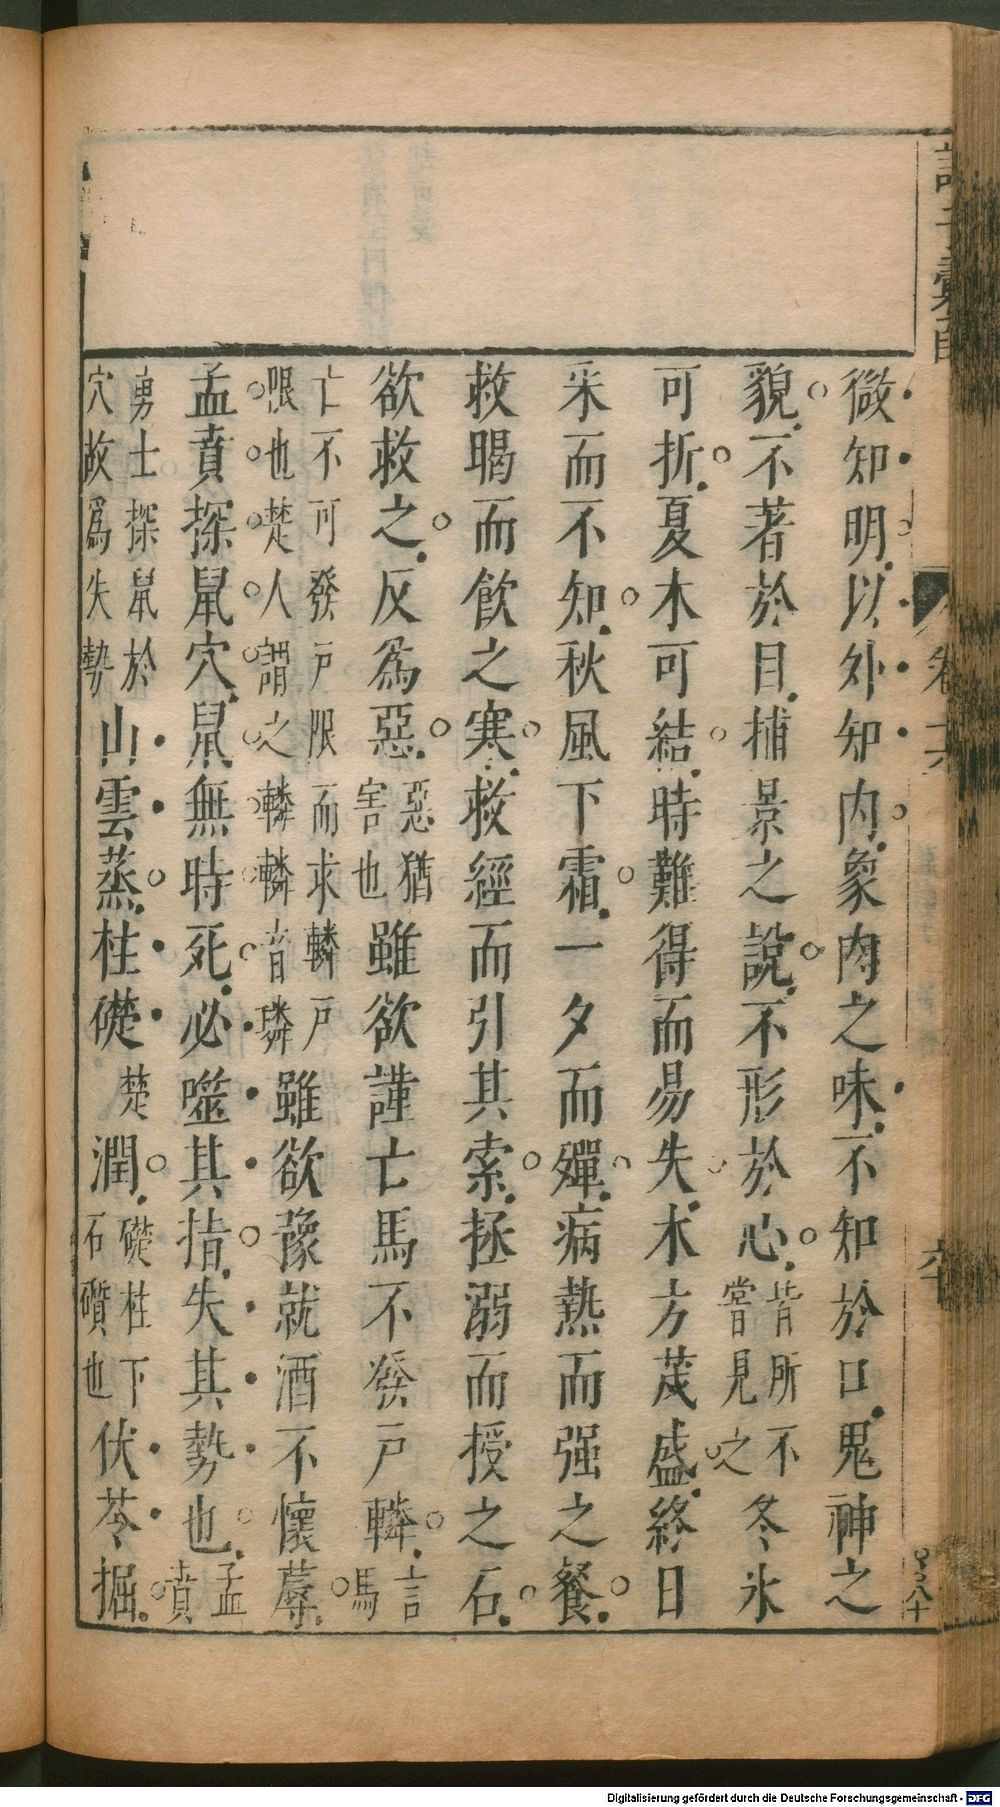 微知明以外知内象肉之味不知於口鬼神之
貌不著於目捕景之說不形於心皆所不嘗見之冬氷
可折夏木可結時難得而易失木方茂盛終日
采而不知秋風下霜一夕而殫病熱而强之餐
救暍而飲之寒救經而引其索拯溺而授之石
欲救之反爲惡惡猶害也雖欲謹亡馬不發户轔言馬
亡不可發户限而求轔户限也楚人謂之轔轔音璘雖欲豫就酒不懷蓐
孟賁探鼠穴鼠無時死必噬其指失其勢也孟賁
勇士探鼠於穴故爲失勢山雲蒸柱礎楚潤礎柱下石礩也伏苓掘
Digitalisierung gefördert durch die Deutsche Forschungsgemeinschaft - DFG